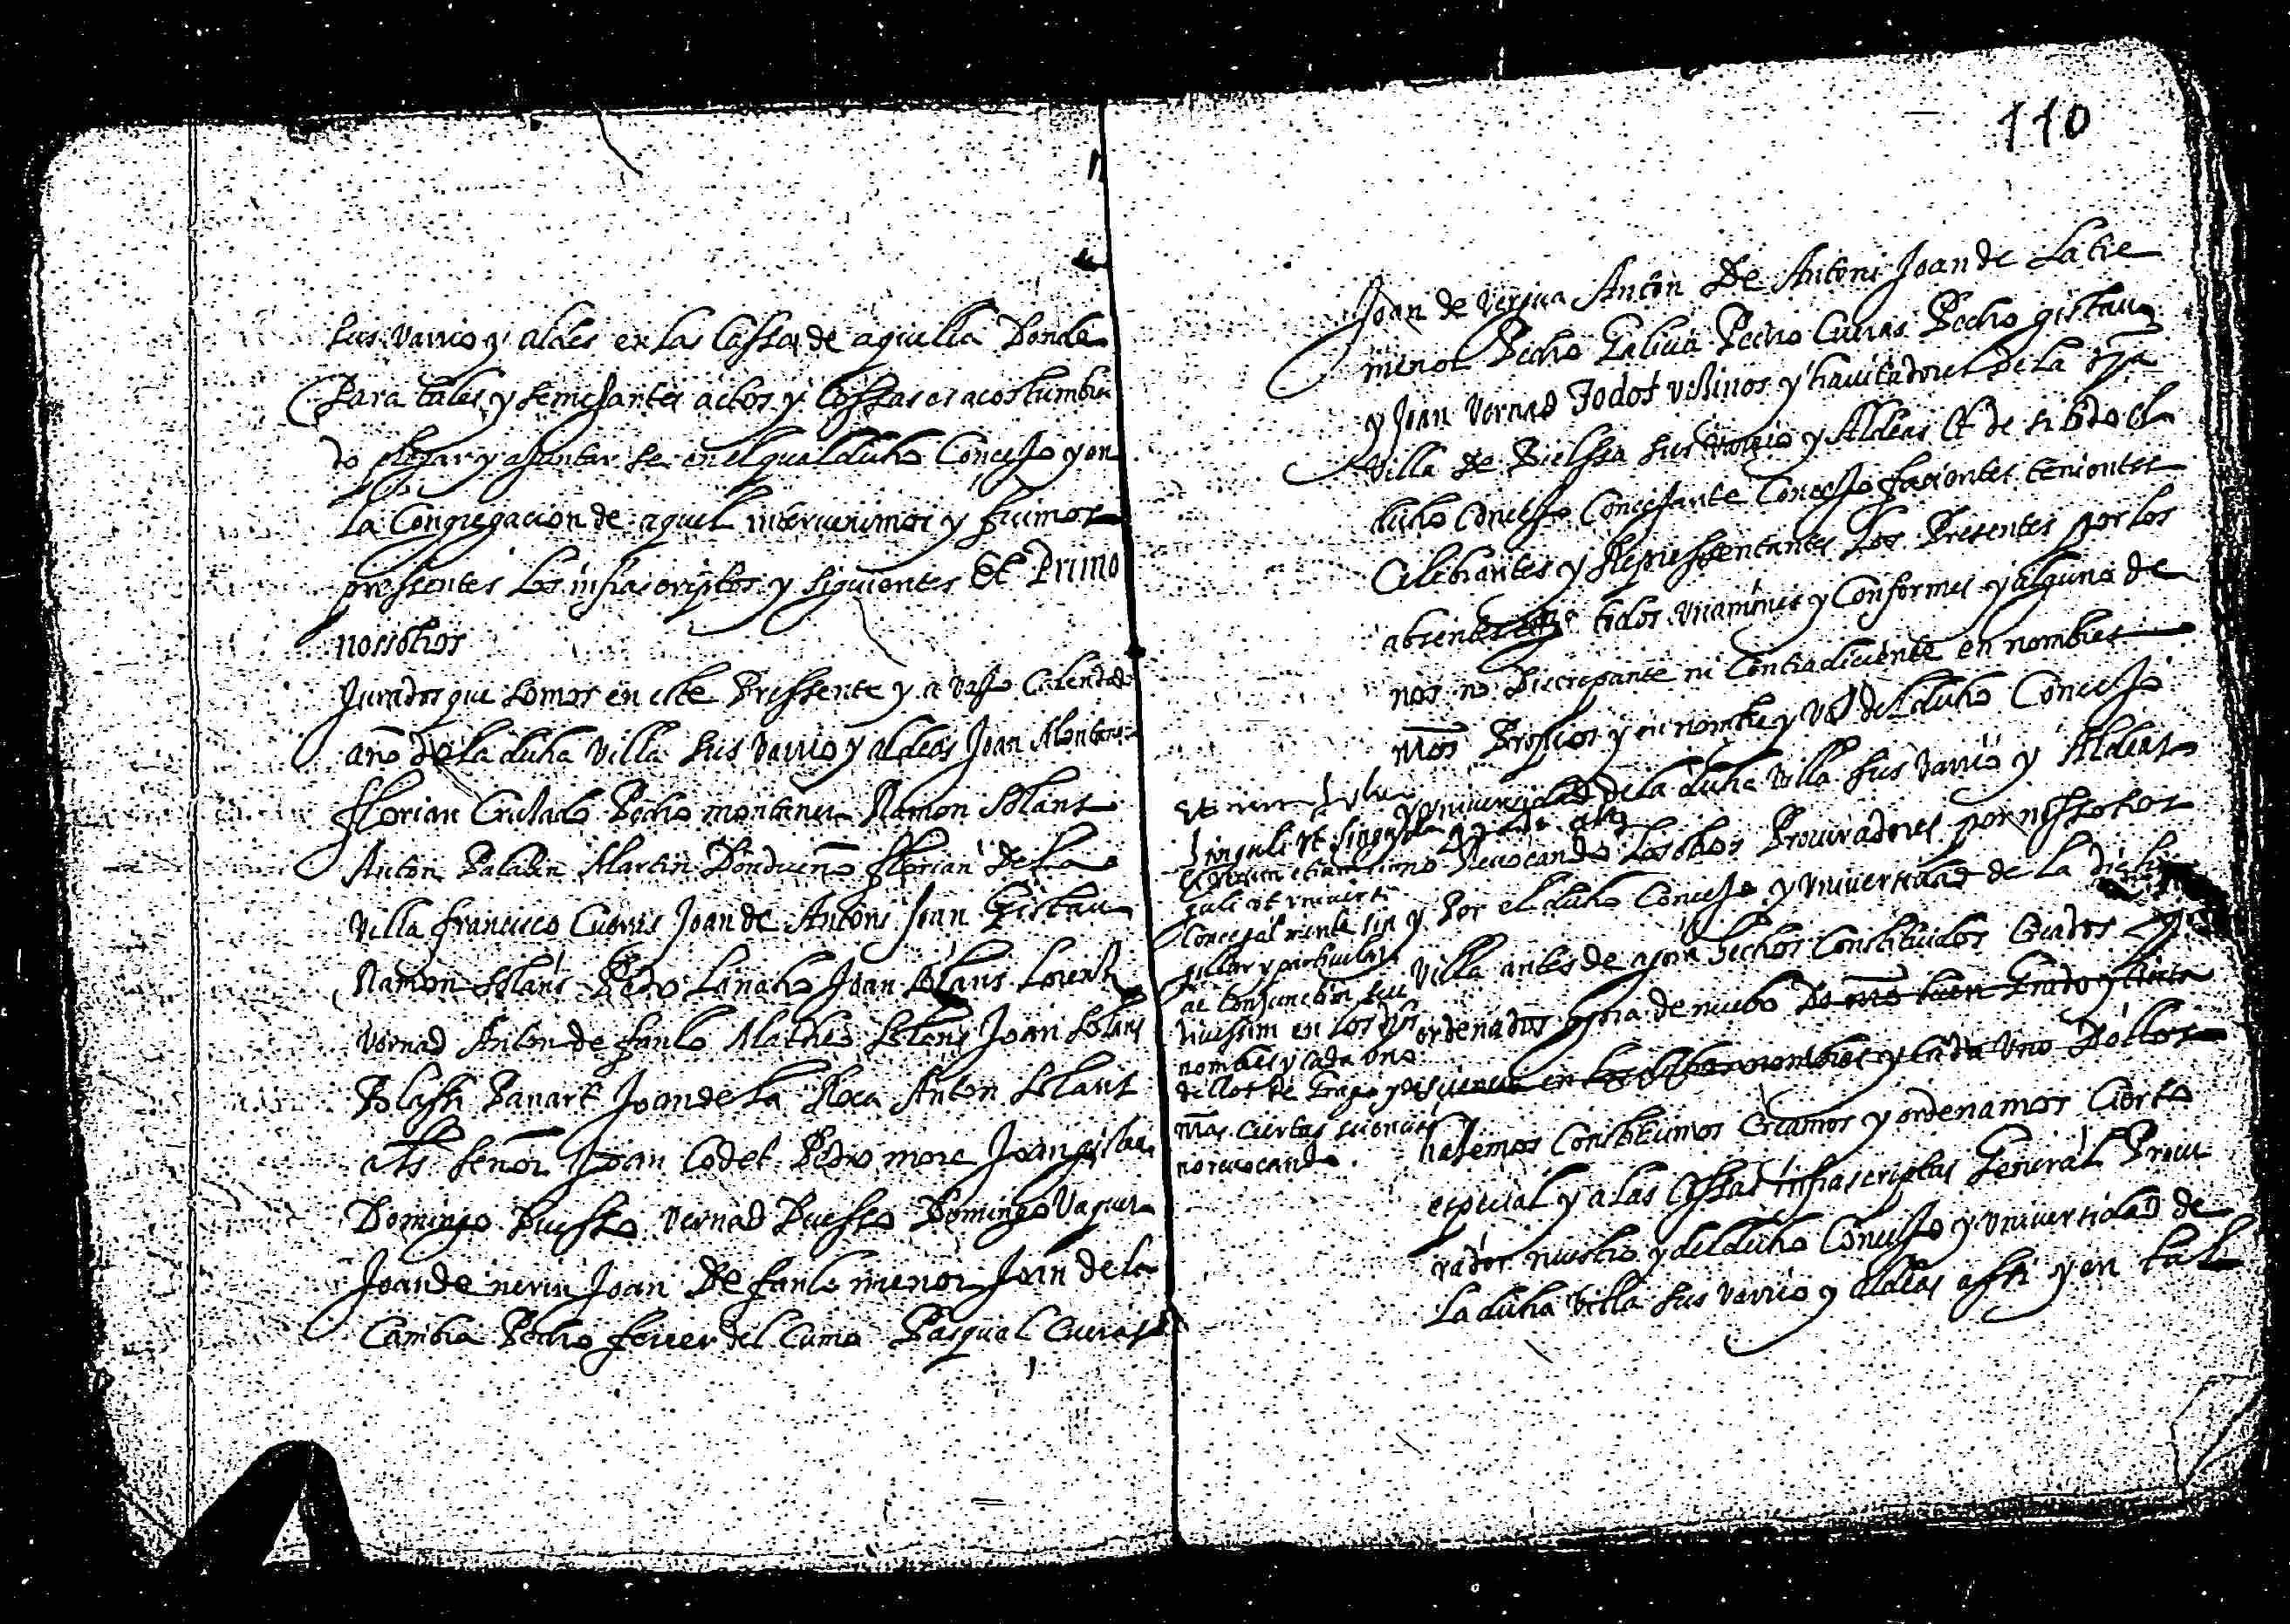 sus varrio y aldes en las cassas de aquella Donde
Para tales y semejantes actos y cossas es acostumbra
do plegar y ajuntar se en el qual dicho Concejo y en
la Congregacion de aquel interuenimos y fuimos
pressentes los infrascriptos y siguientes Et Primo
nossotros
Jurados que somos en este Pressente y a vajo Calendado
año de la dicha Villa sus varrio y aldeas Joan
florian Pedro montaner Ramon solans
Anton Palacin Martin florian De la
villa francisco Cueras Joan de Antoni Joan Gistau
Ramon solans Pedro Joan solans Lorenz
vernad Anton de fanlo Matheo solans Joan solans
Blasi Panart Joan de la Roca Anton solans
señor Joan Codet Pedro mora Joan gistau
Domingo Puesso vernad Puesso Domingo
Joan de nerin Joan De fanlo menor Joan de la
Cambra Pedro ferrer del Pasqual Cueras
110
Joan de Vergua Anton De Antoni Joan de
menor Pedro Galicia Pedro Cueras Pedro gistau
y Joan Vernad Todos vezinos y hauitadores De la
Villa de Bielssa sus varrio y Aldeas Et de si todo el
dicho Concejo Concejante Concejo facientes tenientes
Celebrantes y Representantes Los Presentes por los
absentes todos vnanimes y Conformes y alguno de
nos no Discrepante ni Contradiciente en nombres
nros Propios y en nombre y voz del dicho Concejo
y vniuersidad de la dicha villa sus varrio y Aldeas
no Reuocando los otros Procuradores por nossotros
y Por el dicho Concejo y vniuersidad de la dicha
Villa antes de agora hechos Constituidos Creados
ordenados agora de nuebo De nro buen Grado y cierta
sciencia en los nombres y cada vno Dellos
hazemos Constituimos Creamos y ordenamos Cierto
especial y a las cossas infrascriptas General Procu
rador nuestro y del dicho Concejo y vniuersidad de
la dicha villa sus varrio y aldeas assi y en tal
singuli et
Concejal mente sin
gular y particular
ac
en los
nombres y cada vno
dellos de Grado y de
nras ciertas sciencias
no reuocando